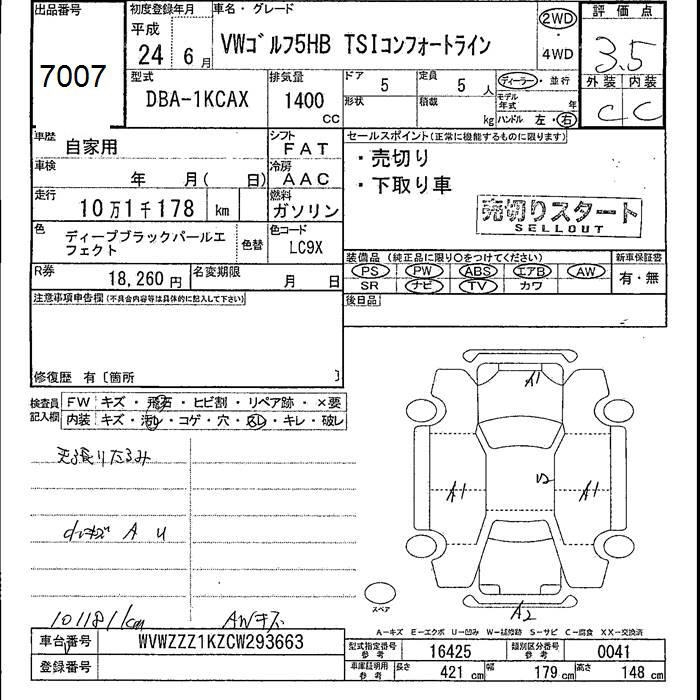 出品番号
7007
初度登録年月
平成
24 6月
車名・グレード
VWゴルフ5HB TSIコンフォートライン
2WD
・
4WD
評価点
3.5
外装 内装
C C
型式
DBA-1KCAX
排気量
1400
CC
ドア
5
定員
5人
形状
積載
kg
ディーラー・並行
モデル年式 年
ハンドル 左・右
車歴
自家用
シフト
FAT
車検
年 月( 日)
冷房
AAC
走行
10万1千178 km
燃料
ガソリン
色
ディープブラックパールエフェクト
色替
色コード
LC9X
R券
18,260円
名変期限
月 日
セールスポイント(正常に機能するものに限ります)
・売切り
・下取り車
売切りスタート
SELLOUT
装備品(純正品に限り○をつけてください)
PS PW ABS エアB AW
SR ナビ TV カワ
新車保証書
有・無
後日品
注意事項申告欄(不具合内容等は具体的に記入して下さい)
修復歴 有〔箇所 〕
検査員記入欄
FW キズ・飛石・ヒビ割・リペア跡・×要
内装 キズ・汚レ・コゲ・穴・スレ・キレ・破レ
天張りたるみ
小キズ A U
101181km
AWキズ
A1
A1
A1
U2
A2
スペア
A-キズ E-エクボ U-凹み W-補修跡 S-サビ C-腐食 XX-交換済
車台番号
WVWZZZ1KZCW293663
登録番号
型式指定番号参考
16425
類別区分番号参考
0041
車庫証明用参考
長さ 421 cm
幅 179 cm
高さ 148 cm